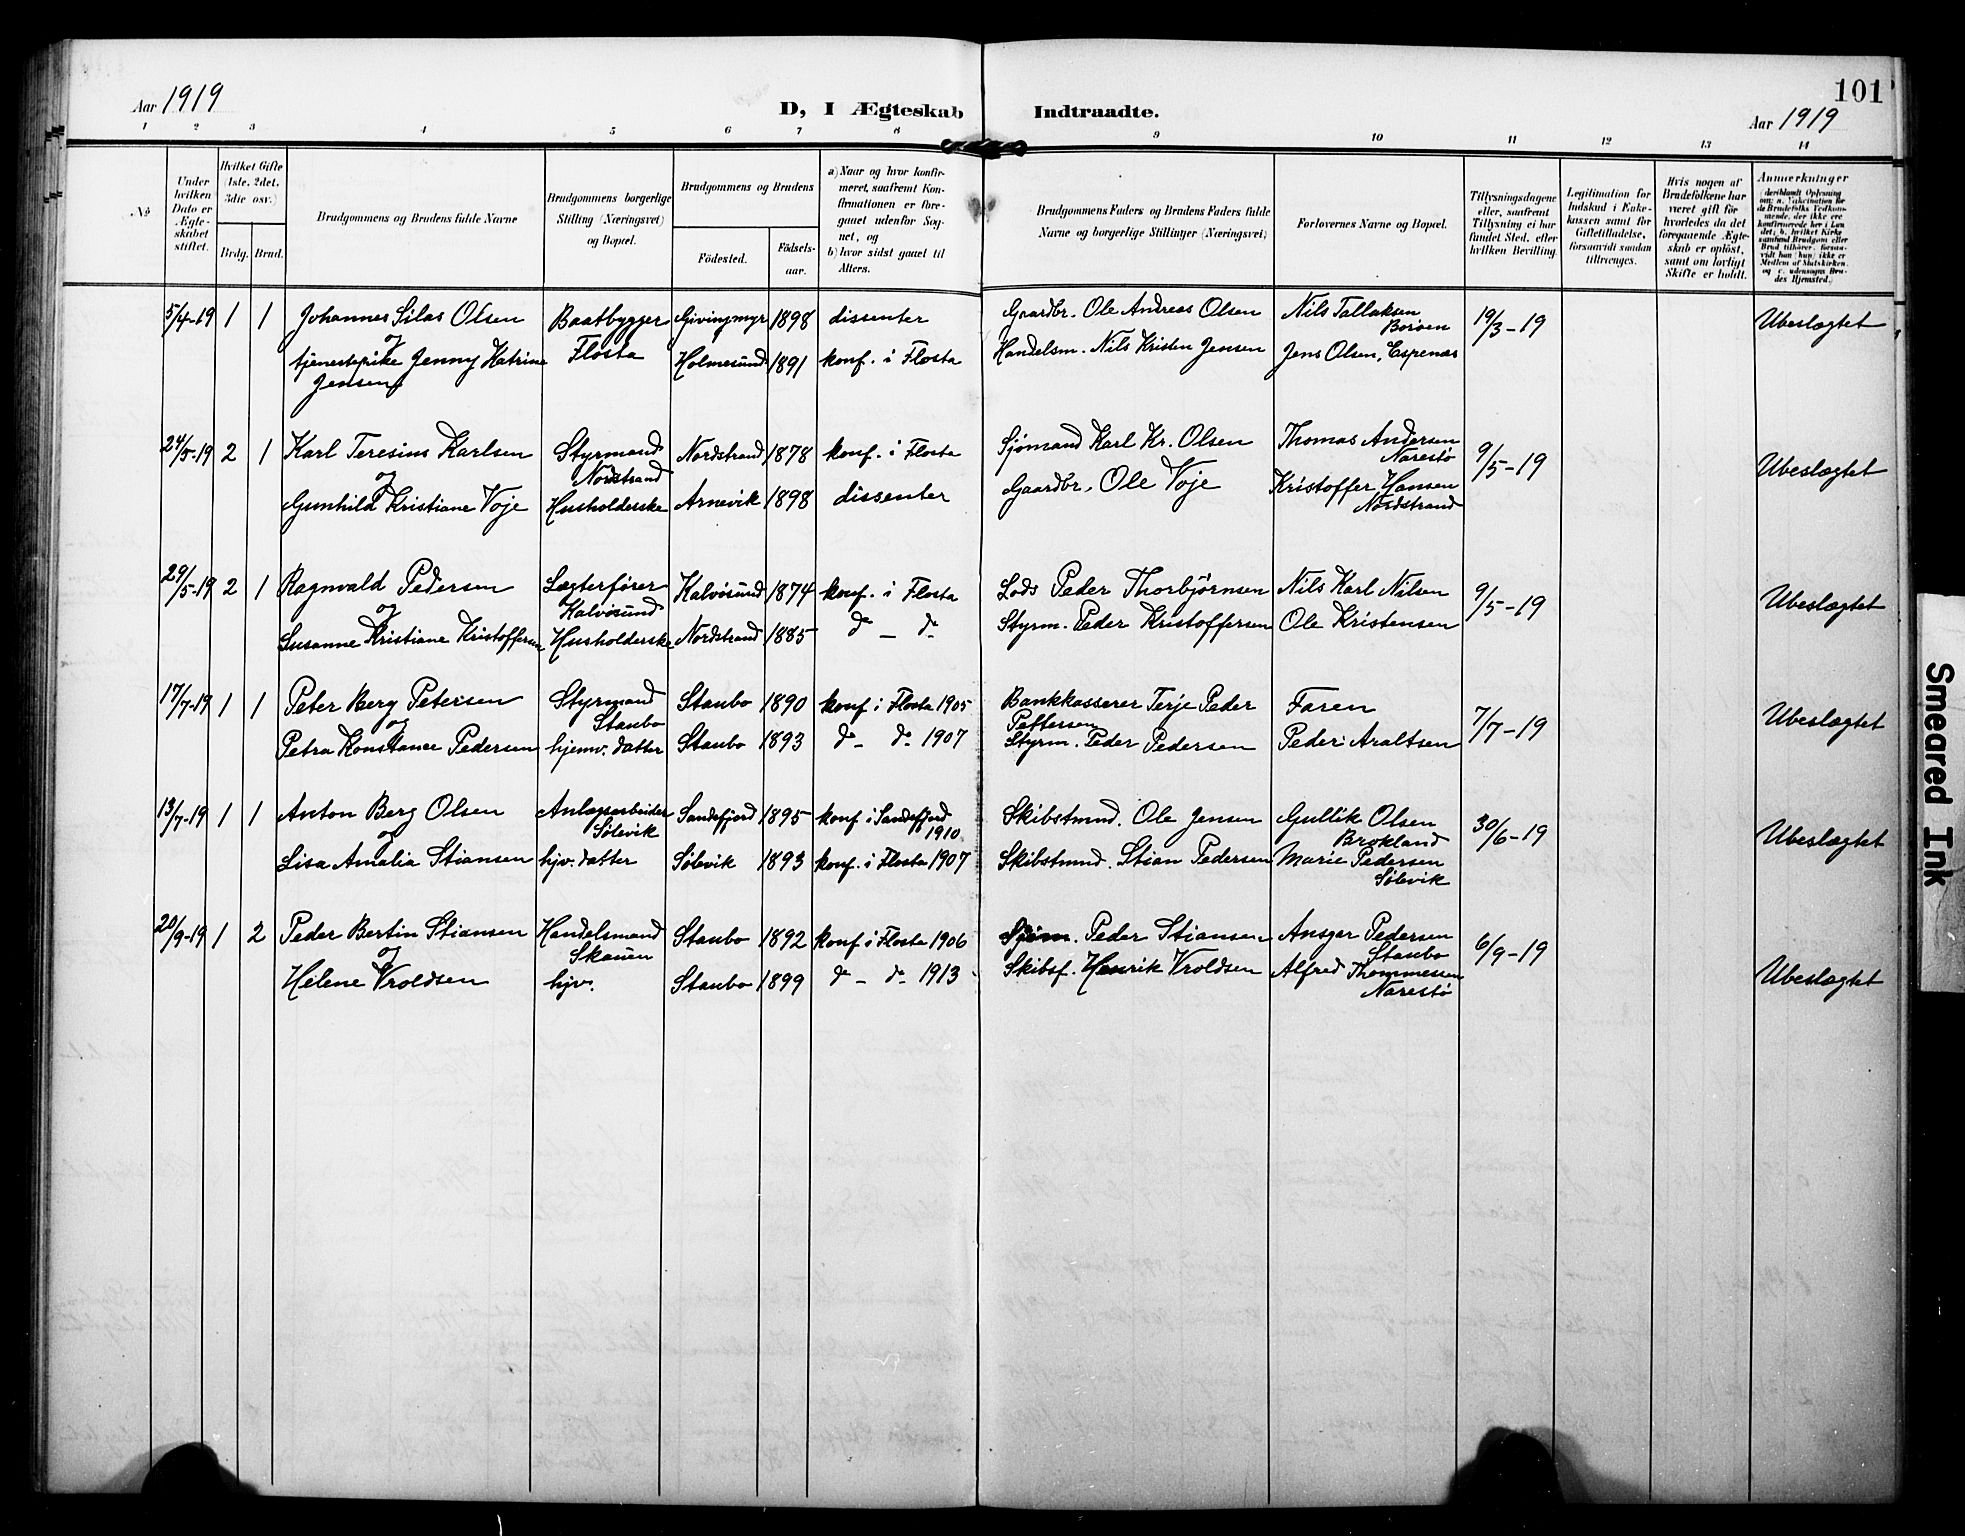 101
Aar 1919
D, I Ægteskab Indtraadte.
Aar 1919
1 2 3 4 5 6 7 8 9 10 11 12 13 14
No
Under hvilken Dato er Ægteskabet stiftet.
Hvilket Gifte (1ste, 2det, 3die osv.)
Brdg. Brud.
Brudgommens og Brudens fulde Navne
Brudgommens borgerlige Stilling (Næringsvei) og Bopæl.
Brudgommens og Brudens
Fødested.
Fødselsaar.
a) Naar og hvor konfirmeret, saafremt Konfirmationen er foregaaet udenfor Sognet, og
b) hvor sidst gaaet til Alters.
Brudgommens Faders og Brudens Faders fulde Navne og borgerlige Stillinger (Næringsvei)
Forlovernes Navne og Bopæl.
Tillysningsdagene eller, saafremt Tillysning ei har fundet Sted, efter hvilken Bevilling.
Legitimation for Indskud i Enkekassen samt for Giftetilladelse, forsaavidt saadan tiltrænges.
Hvis nogen af Brudefolkene har været gift før hvorledes da det foregaaende Ægteskab er opløst, samt om lovligt Skifte er holdt.
Anmerkninger (deriblandt Oplysning om: a. Vakcination for de Brudefolks Vedkommende, der ikke ere konfirmerede her i Landet; b. hvilket Kirkesamfund Brudgom eller Brud tilhører, forsaavidt han (hun) ikke er Medlem af Statskirken, og c. udensogns Brudes Hjemsted.)
5/4-19 1 1 Johannes Silas Olsen Baatbygger Givingmyr 1898 dissenter Gaardbr. Ole Andreas Olsen Nils Tallaksen 19/3-19 Ubeslægtet
og Flosta Borøen
tjenestepike Jenny Katrine Holmesund 1891 konf. i Flosta Handelsm. Nils Kristen Jensen Jens Olsen, Espenæs
Jensen
24/5-19 2 1 Karl Teresius Karlsen Styrmand Nordstrand 1878 konf. i Flosta Sjømand Karl Kr. Olsen Thomas Andersen 9/5-19 Ubeslægtet
og Nordstrand Narestø
Gunhild Kristiane Voje Husholderske Arnevik 1898 dissenter Gaardbr. Ole Voje Kristoffer Hansen
Nordstrand
29/5-19 2 1 Ragnvald Pedersen Lægterfører Kalvøsund 1874 konf. i Flosta Lods Peder Thorbjørnsen Nils Karl Nilsen 9/5-19 Ubeslægtet
og Kalvøsund
Susanne Kristiane Kristoffersen Husholderske Nordstrand 1885 do - do Styrm. Peder Kristoffersen Ole Kristensen
17/7-19 1 1 Peter Berg Petersen Styrmand Staubo 1890 konf i Flosta 1905 Bankkasserer Terje Peder Faren 7/7-19 Ubeslægtet
og Staubo
Petra Konstance Pedersen hjemv. datter Staubo 1893 do - do 1907 Styrm. Peder Pedersen Peder Araltsen
13/7-19 1 1 Anton Berg Olsen Anlægsarbeider Sandefjord 1895 konf i Sandefjord Skibstmnd. Ole Jensen Gullik Olsen 30/6-19 Ubeslægtet
og Sølevik 1910 Brekland
Lisa Amalia Stiansen hjv. datter Sølevik 1893 konf. i Flosta 1907 Skibstmnd. Stian Pedersen Marie Pedersen
Sølevik
20/9-19 1 2 Peder Bertin Stiansen Handelsmand Staubo 1892 konf i Flosta 1906 Sjøm. Peder Stiansen Ansgar Pedersen 6/9-19
og Skauen Staubo
Helene Vroldsen hjv. Staubo 1899 do - do 1913 Skibsf. Henrik Vroldsen Alfred Thommesen Ubeslægtet
Narestø
Smeared Ink